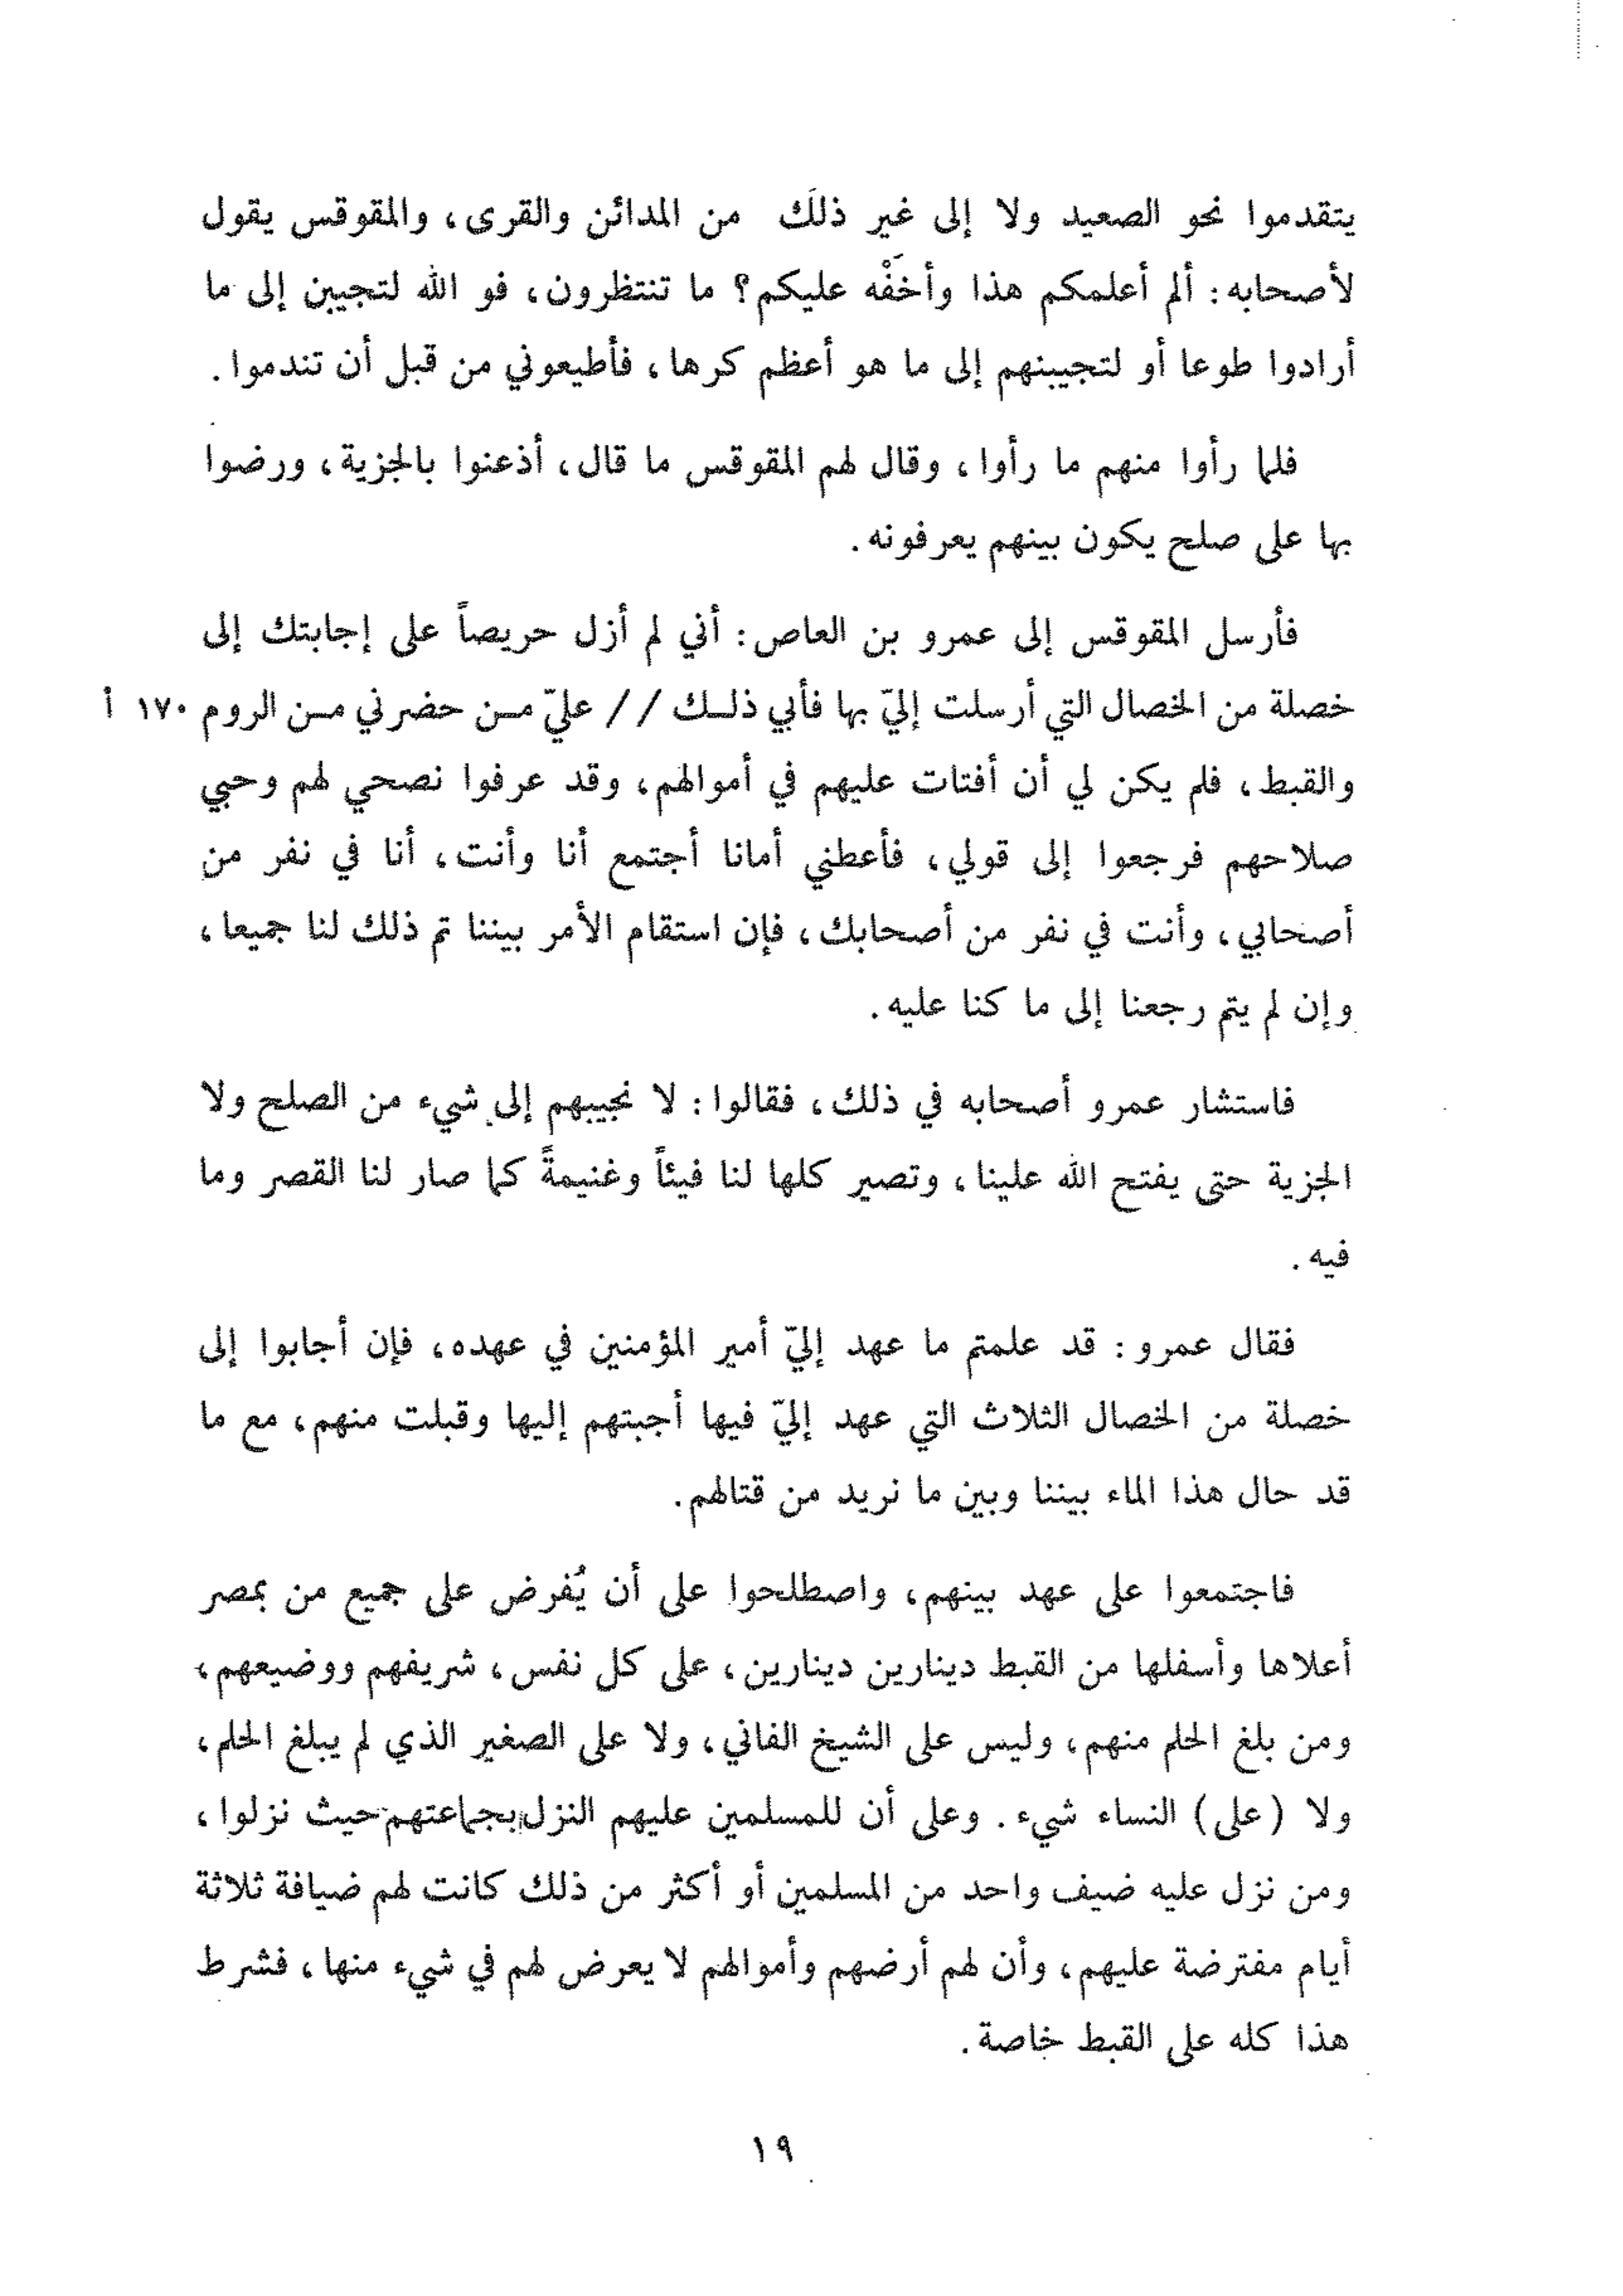 يتقدموا نحو الصعيد ولا إلى غير ذلك من المدائن والقرى، والمقوقس يقول
لأصحابه: ألم أعلمكم هذا وأخَفْه عليكم؟ ما تنتظرون، فو الله لتجيبن إلى ما
أرادوا طوعا أو لتجيبنهم إلى ما هو أعظم كرها، فأطيعوني من قبل أن تندموا.
فلما رأوا منهم ما رأوا، وقال لهم المقوقس ما قال، أذعنوا بالجزية، ورضوا
بها على صلح يكون بينهم يعرفونه.
فأرسل المقوقس إلى عمرو بن العاص: أني لم أزل حريصاً على إجابتك إلى
خصلة من الخصال التي أرسلت إليّ بها فأبي ذلـك // عليّ مـن حضرني مـن الروم ١٧٠ أ
والقبط، فلم يكن لي أن أفتات عليهم في أموالهم، وقد عرفوا نصحي لهم وحبي
صلاحهم فرجعوا إلى قولي، فأعطني أمانا أجتمع أنا وأنت، أنا في نفر من
أصحابي، وأنت في نفر من أصحابك، فإن استقام الأمر بيننا تم ذلك لنا جميعا،
وإن لم يتم رجعنا إلى ما كنا عليه.
فاستشار عمرو أصحابه في ذلك، فقالوا: لا نجيبهم إلى شيء من الصلح ولا
الجزية حتى يفتح الله علينا، وتصير كلها لنا فيئاً وغنيمةً كما صار لنا القصر وما
فيه.
فقال عمرو: قد علمتم ما عهد إليّ أمير المؤمنين في عهده، فإن أجابوا إلى
خصلة من الخصال الثلاث التي عهد إليّ فيها أجبتهم إليها وقبلت منهم، مع ما
قد حال هذا الماء بيننا وبين ما نريد من قتالهم.
فاجتمعوا على عهد بينهم، واصطلحوا على أن يُفرض على جميع من بمصر
أعلاها وأسفلها من القبط دينارين دينارين، على كل نفس، شريفهم ووضيعهم،
ومن بلغ الحلم منهم، وليس على الشيخ الفاني، ولا على الصغير الذي لم يبلغ الحلم،
ولا (على) النساء شيء. وعلى أن للمسلمين عليهم النزل بجماعتهم حيث نزلوا،
ومن نزل عليه ضيف واحد من المسلمين أو أكثر من ذلك كانت لهم ضيافة ثلاثة
أيام مفترضة عليهم، وأن لهم أرضهم وأموالهم لا يعرض لهم في شيء منها، فشرط
هذا كله على القبط خاصة.
١٩